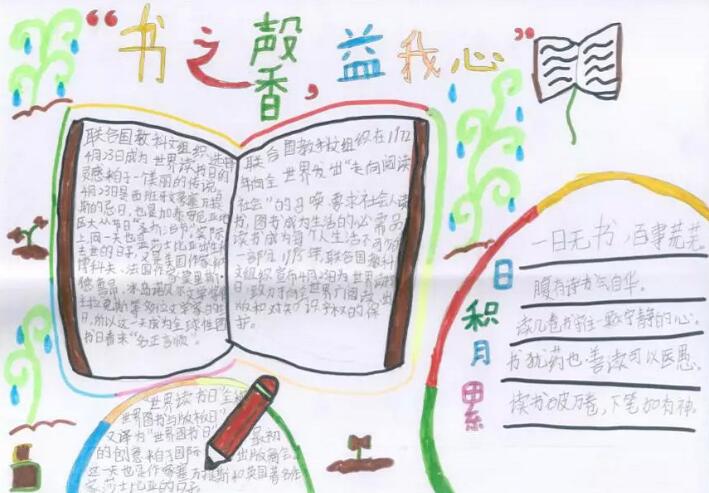 “书之声香，益我心”
联合国教科文组织选
4月23日成为世界读书日的
灵感来自于一美丽的传说。
4月23日是西班牙文豪塞万提
斯的忌日，也是加泰罗尼亚地
区大众节日“圣乔治节”。实际
上同一天也是莎士比亚出生和
去世的日子，又是美国作家纳
博科夫、法国作家莫里斯·
德鲁昂、冰岛诺贝尔文学奖得
主拉克斯内斯等多位文学家的生
日，所以这一天成为全球性图
书日看来“名正言顺”。
联合国教科文组织在1972
年向全世界发出“走向阅读
社会”的召唤，要求社会人读
书，图书成为生活的必需品
读书成为每个人生活不可分
一部分。1995年，联合国教科
文组织宣布4月23日为世界读
日，致力于向全世界推广阅读、出
版和对知识产权的保
护。
“世界读书日”全称
世界图书与版权日”
又译为“世界图书日”最初
的创意来自于国际出版商会。
这一天也是作家塞万提斯和英国著名作
家莎士比亚的日子。
日积月累
一日无书，百事荒芜。
腹有诗书气自华。
读几卷书存一颗宁静的心。
书犹药也，善读可以医愚。
读书破万卷，下笔如有神。